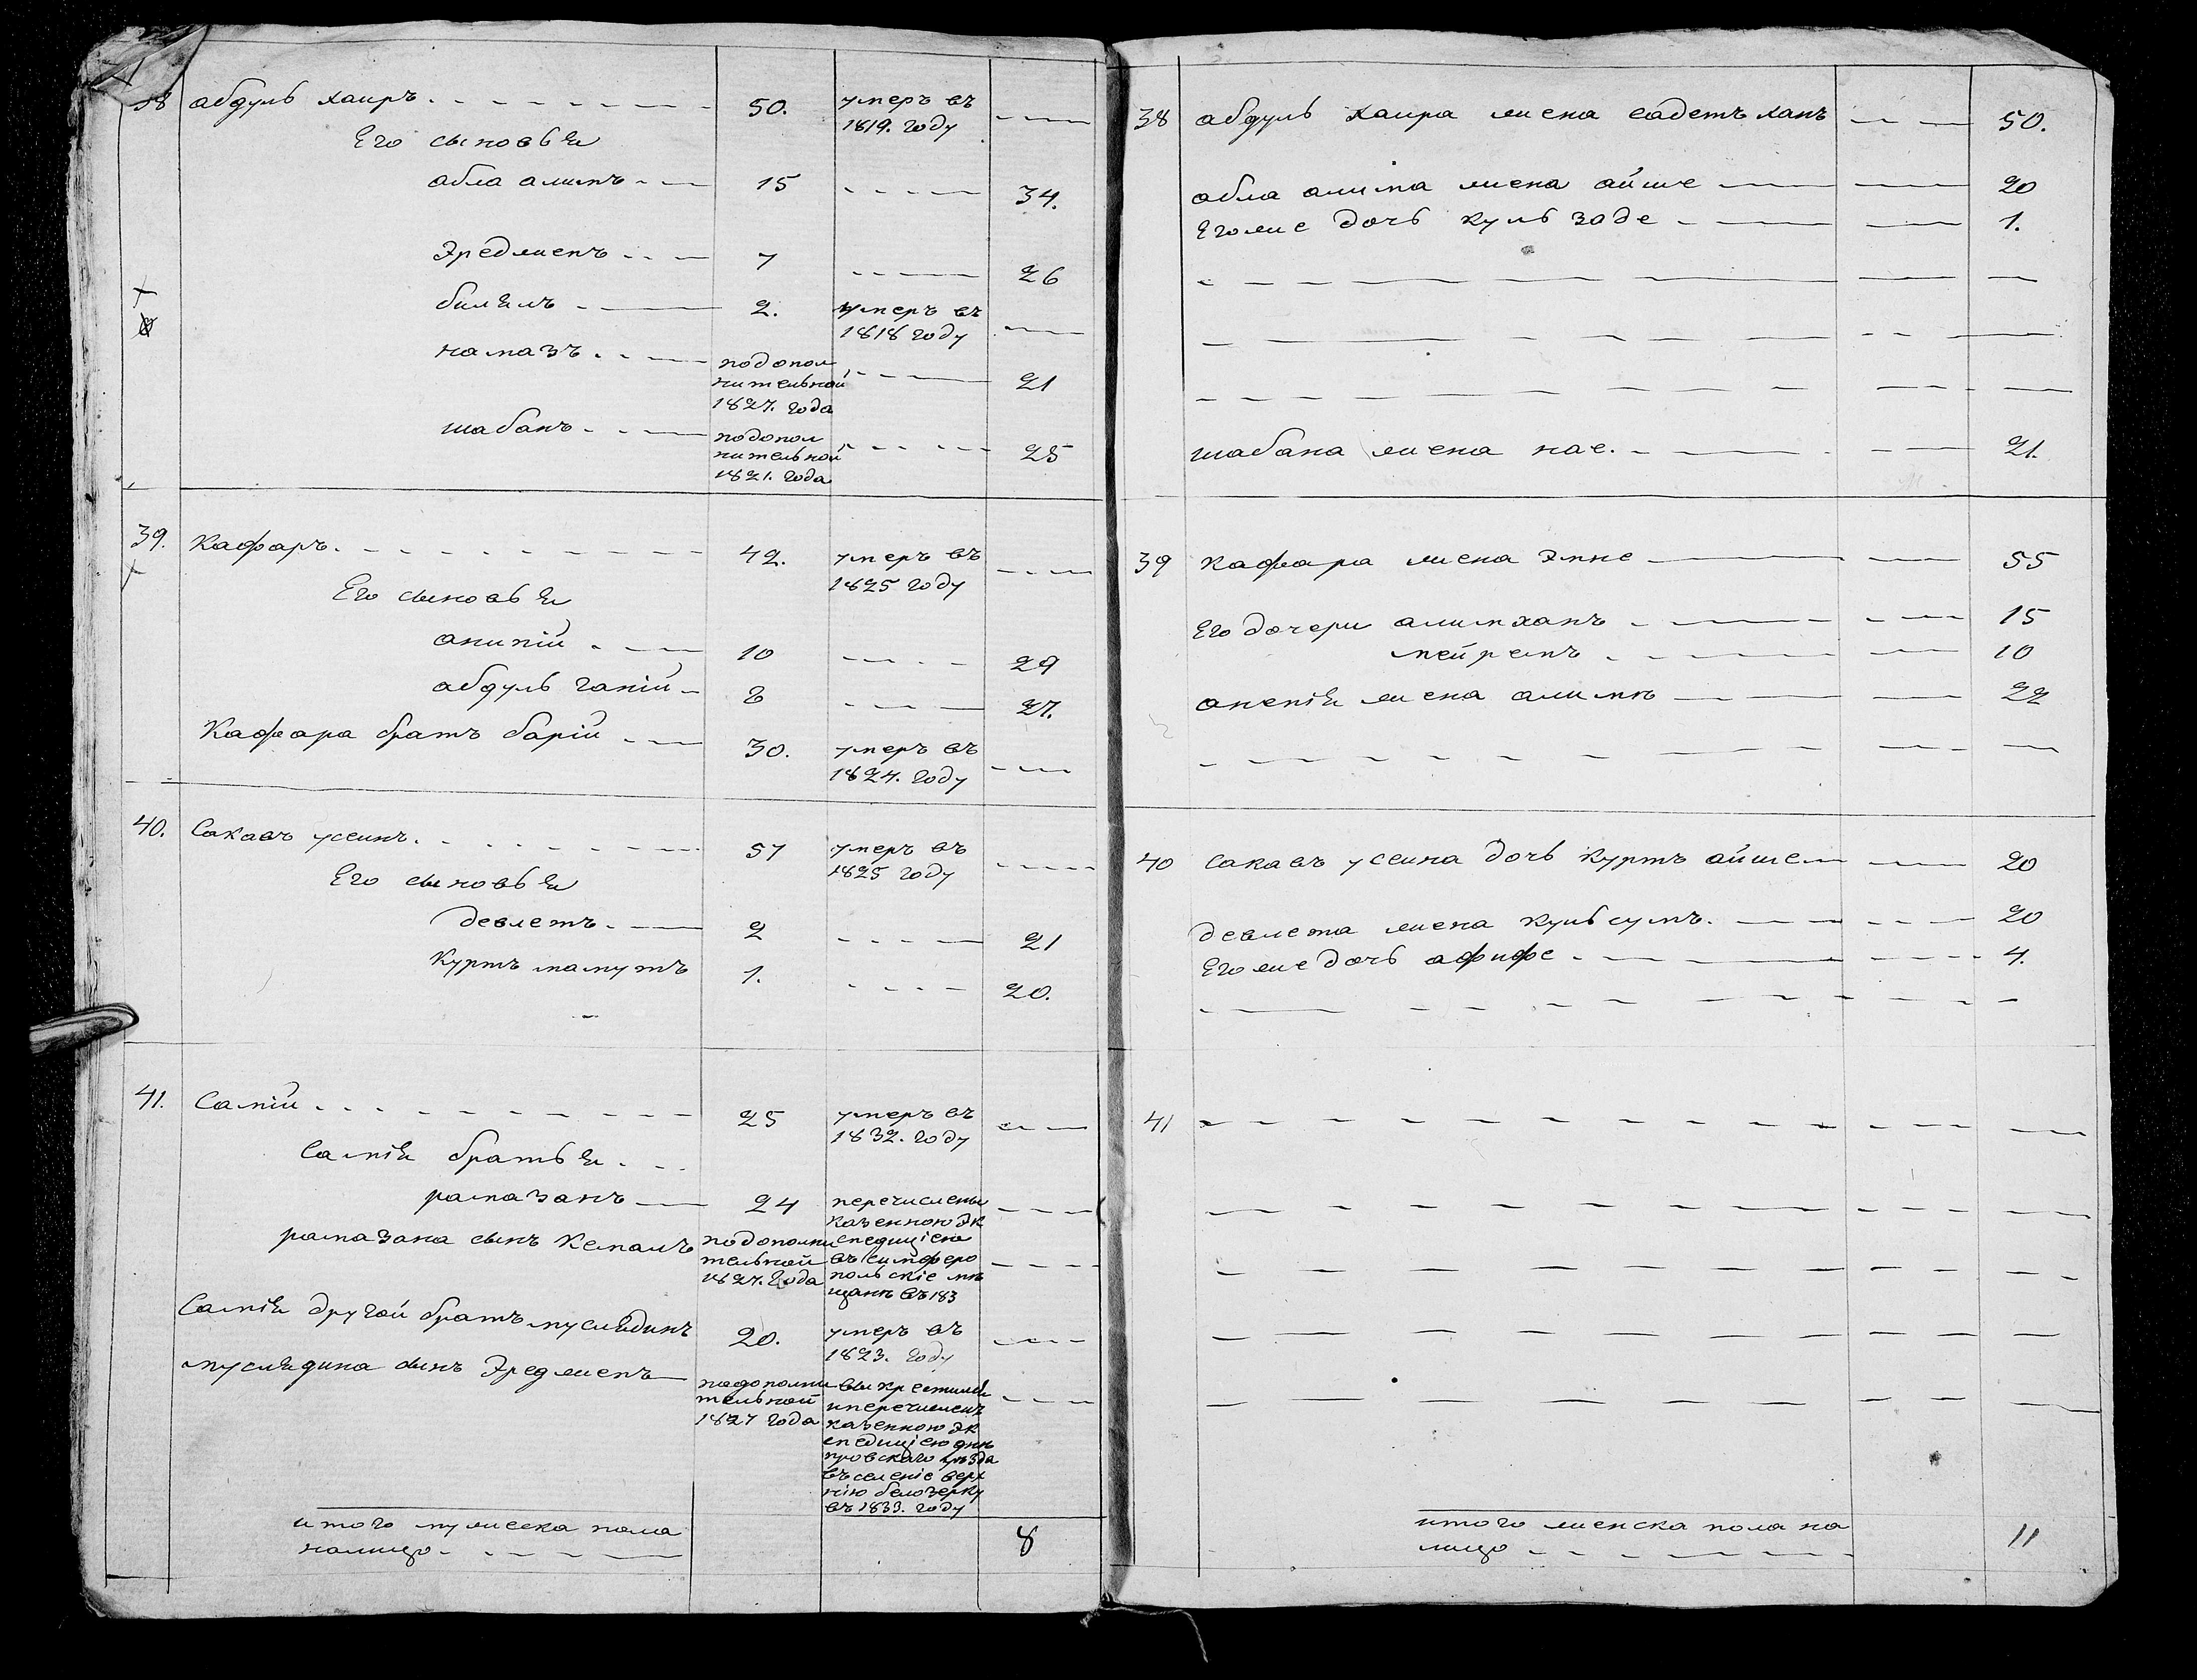 38 абдуль хаиръ 50. умеръ въ
1819. году
Его сыновья
абла алимъ 15 34.
Эреджепъ 7 26
билялъ 2. умеръ въ
1818 году
намазъ подопол
нительной
1827. года 21
шабанъ подопол
нительной
1821. года 25
39. Кафаръ 42. умеръ въ
1825 году
Его сыновья
анипій 10 29
абдуль ганій 8 27.
Кафара братъ барій 30. умеръ въ
1824. году
40. Сакавъ усеинъ 57 умеръ въ
1825 году
Его сыновья
девлетъ 2 21
Куртъ мамутъ 1. 20.
41. Самій 25 умеръ въ
1832. году
Самія братья
рамазанъ 24 перечислены
казенною эк
рамазана сынъ Кемалъ подополни
тельной
1827. года спедиціею
въ симферо
польскіе мѣ
щанѣ въ 183
Самія другой братъ муслядинъ 20. умеръ въ
1823. году
муслядина сынъ Эреджепъ подополни
тельной
1827 года выкрестился
и перечисленъ
казенною эк
спедиціею днѣ
провскаго уѣзда
въ селеніе верх
нію белозерку
въ 1833. году
итого мужеска пола
налицо 8
38 абдуль хаира жена садетъ ханъ 50.
абла алима жена айше 20
Егоже дочь куль заде 1.
шабана жена нае. 21.
39 кафара жена Эмне 55
Его дочери алимханъ 15
мейремъ 10
анепія жена алиме 22
40 сакавъ усеина дочь куртъ айше 20
девлета жена кульсумъ. 20
Егоже дочь афифе 4.
41
итого женска пола на
лицо 11